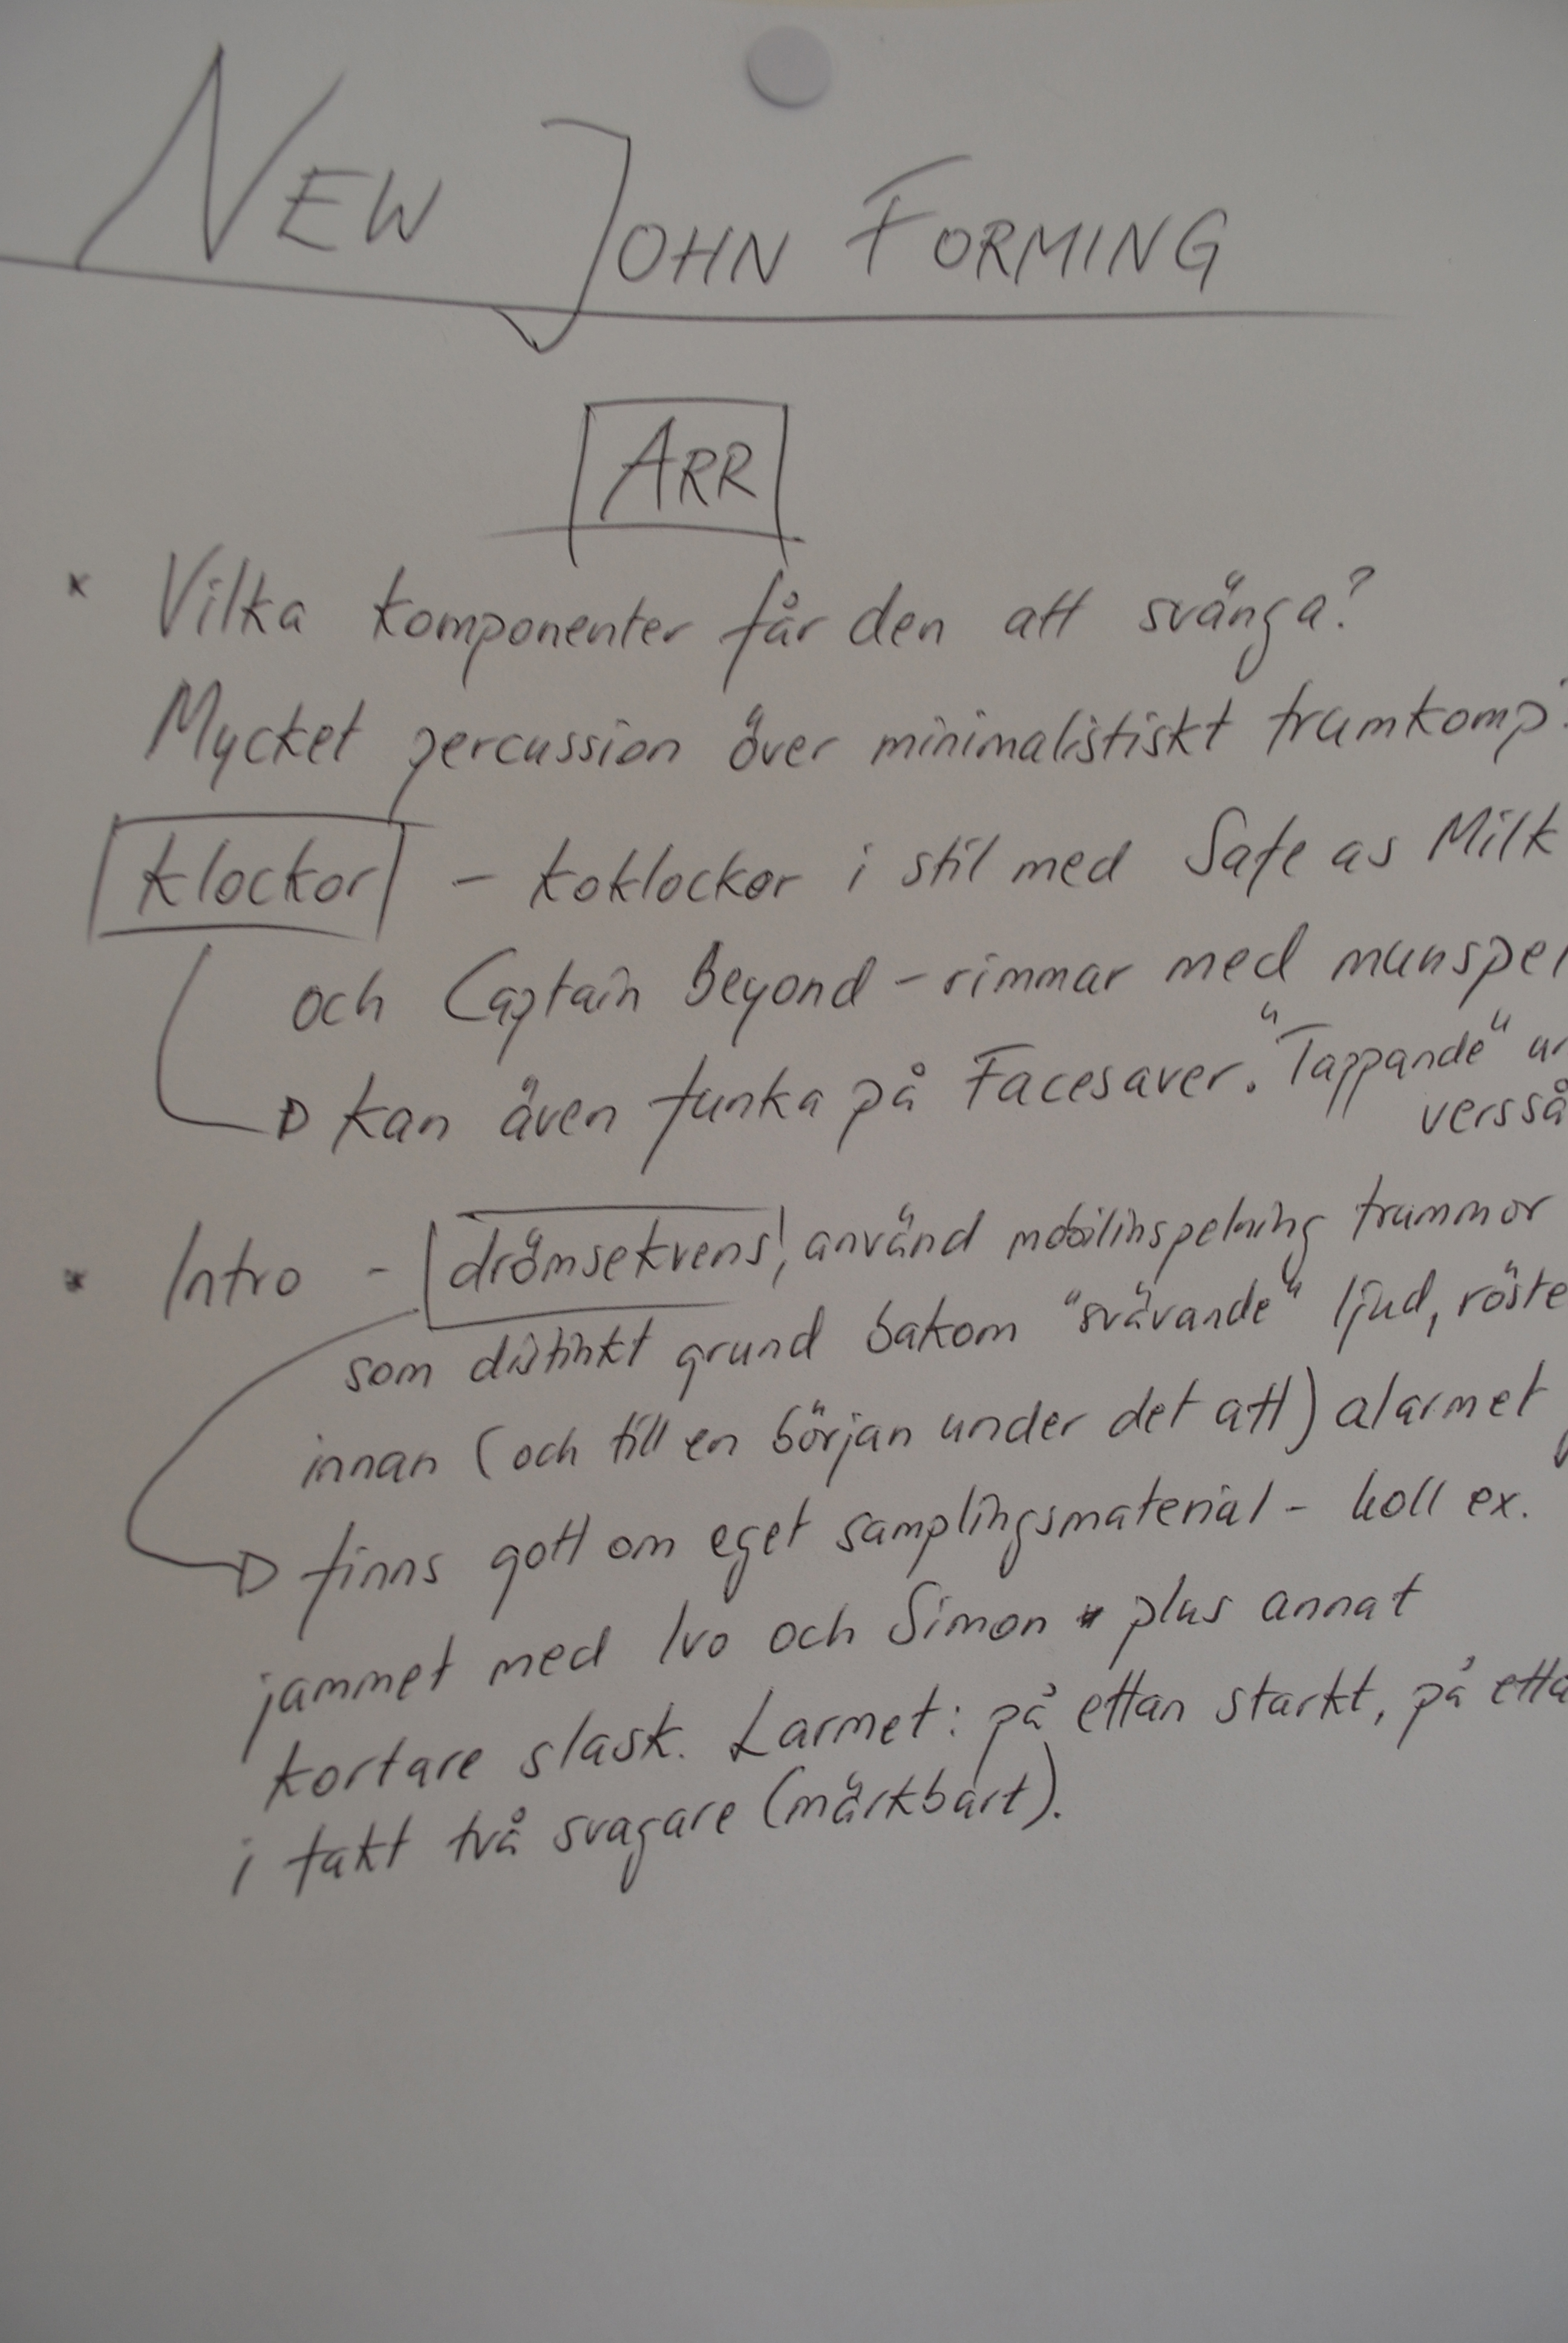 NEW JOHN FORMING
ARR
* Vilka komponenter får den att svänga?
Mycket percussion över minimalistiskt trumkomp?
Klockor - koklockor i stil med Safe as Milk
och Captain Beyond - rimmar med munspel
kan även funka på Facesaver. "Tappande"
* Intro - drömsekvens, använd mobilinspelning trummor
som distinkt grund bakom "svävande" ljud,
innan (och till en början under det att) alarmet
finns gott om eget samplingsmaterial - koll ex.
jammet med Ivo och Simon plus annat
kortare slask. Larmet: på ettan starkt, på
i takt två svagare (märkbart).